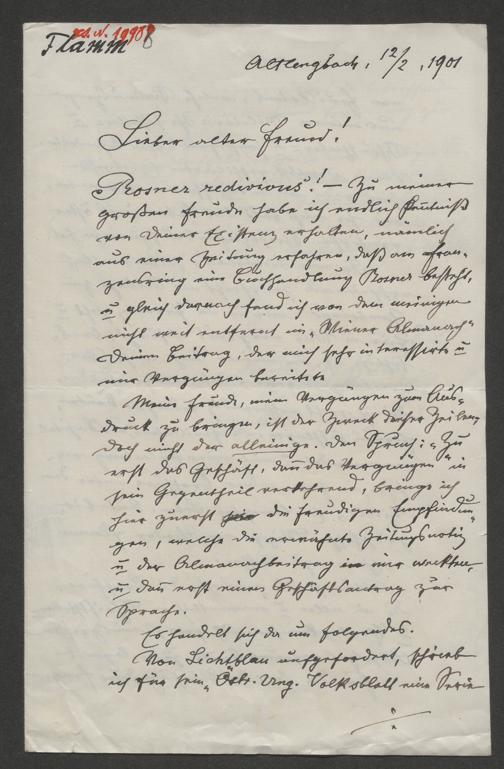 Flamm
Altlengbach, 12/2, 1901
Lieber alter Freund!
"Rosner redivivus"! – Zu meiner
großen Freude habe ich endlich Kentniß
von Deiner Existenz erhalten, nämlich
aus einer Zeitung erfahren, daß am Fran-
zensring eine Buchhandlung Rosner besteht,
u gleich darnach fand ich von dem meinigen
nicht weit entfernt im "Wiener Almanach"
Deinen Beitrag, der mich sehr interessirte u
mir Vergnügen bereitete
Meine Freude, mein Vergnügen zum Aus-
druck zu bringen, ist der Zweck dieser Zeilen
doch nicht der alleinige. Den Spruch: "Zu
erst das Geschäft, dan das Vergnügen" in
sein Gegentheil verkehrend, bringe ich
hier zuerst die freudigen Empfindun
gen, welche die erwähnte Zeitungsnotiz
u der Almanachbeitrag in mir weckten,
u dan erst einen Geschäftsantrag zur
Sprache.
Es handelt sich da um folgendes.
Von Lichtblau aufgefordert, schrieb
ich für sein "Östr. Ung. Volksblatt eine Serie